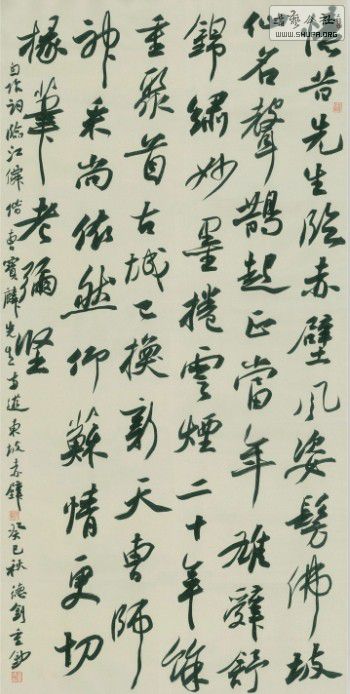 書藝公社
WWW.SHUFA.ORG
憶昔先生臨赤壁風姿髣佛坡
仙名聲鵲起正當年雄辭舒
錦繡妙墨捲雲煙二十年餘
重聚首古城已換新天曹師
神采尚依然仰蘇情更切
椽筆老彌堅
自作詞臨江僊偕曹寶麟先生遊東坡赤壁癸巳秋德劍